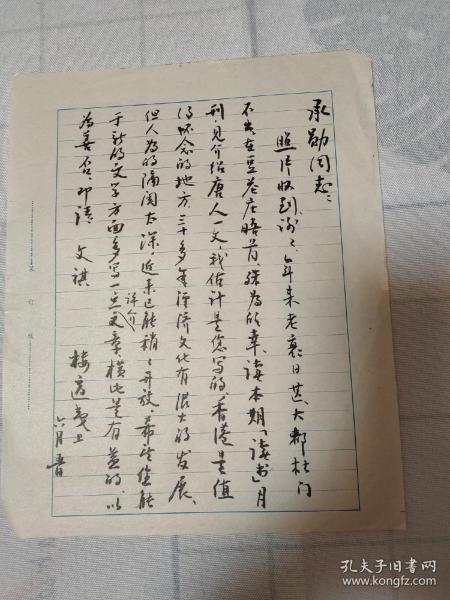 承勋同志：
照片收到，谢谢。年来老衰日甚，大都杜门
不出，在豆花庄晤首，殊为欣幸。读本期「读书」月
刊，见介绍唐人一文，我估计是您写的。香港是值
得怀念的地方，三十多年经济文化有很大的发展、
但人为的隔阂太深，近来已能稍稍开放，希望您能
于新的文学方面多写一点评介文章，横比是有益的。以
为善否。即请 文祺
楼适夷上
六月
孔夫子旧书网
www.kongfz.com